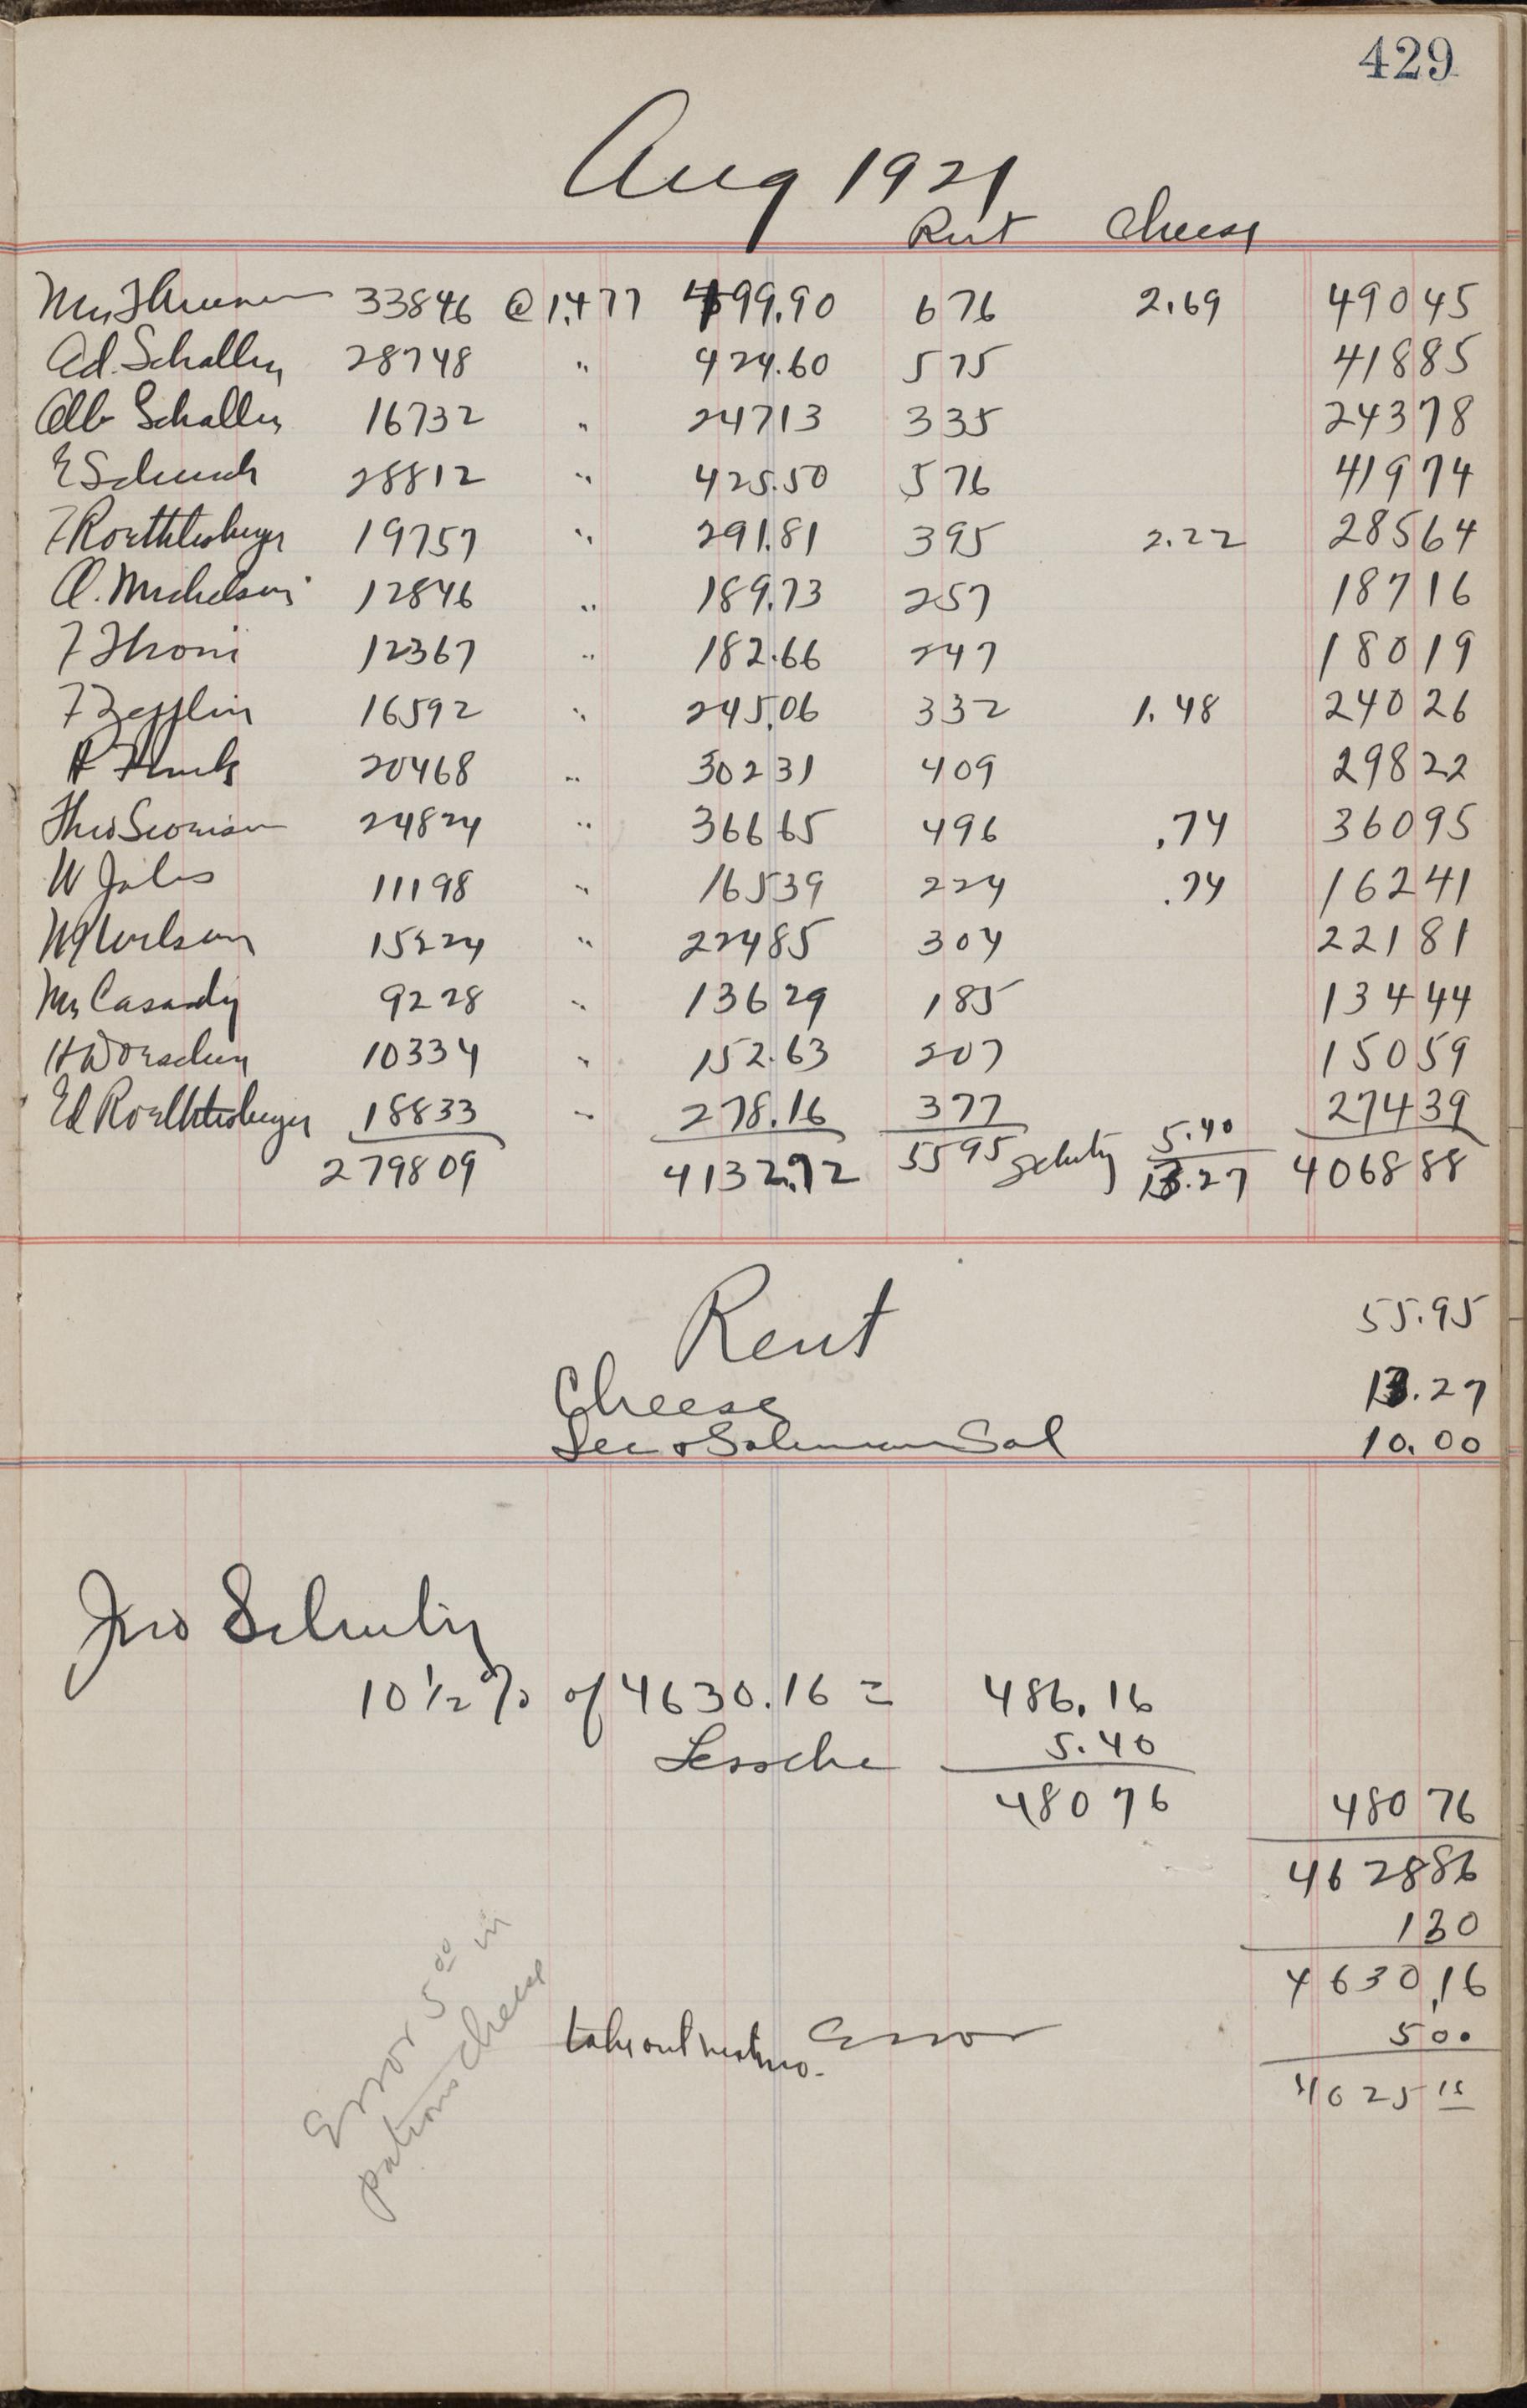 429
Aug 1921
Rent Cheese
Mrs Thuner 33846 @ 1.477 499.90 676 2.69 490 45
Ad. Schaller 28748 " 424.60 575 418 85
Alb Schaller 16732 " 247 13 335 243 78
E Schuch 28812 " 425.50 576 419 74
F Roethlisberger 19757 " 291.81 395 2.22 285 64
A. Michelson 12846 " 189.73 257 187 16
F Throni 12367 " 182.66 247 180 19
F Zefflin 16592 " 245.06 332 1.48 240 26
20468 " 302 31 409 298 22
Theo 24824 " 366 65 496 .74 360 95
W 11198 " 165 39 224 .74 162 41
15224 " 224 85 304 221 81
Mr Casardy 9228 " 136 29 185 134 44
H 10334 " 152.63 207 150 59
Ed Roethlisberger 18833 " 278.16 377 5.40 274 39
279809 4132.92 55 95 13.27 4068 88
Rent 55.95
Cheese 13.27
Sec & Salesman Sal 10.00
Jno
10 1/2 % of 4630.16 = 486.16
Less che 5.40
480 76 480 76
4628 86
1 30
4630.16
Error 5 00 in
patrons cheese
take out next mo. Error 5 00
4625 16